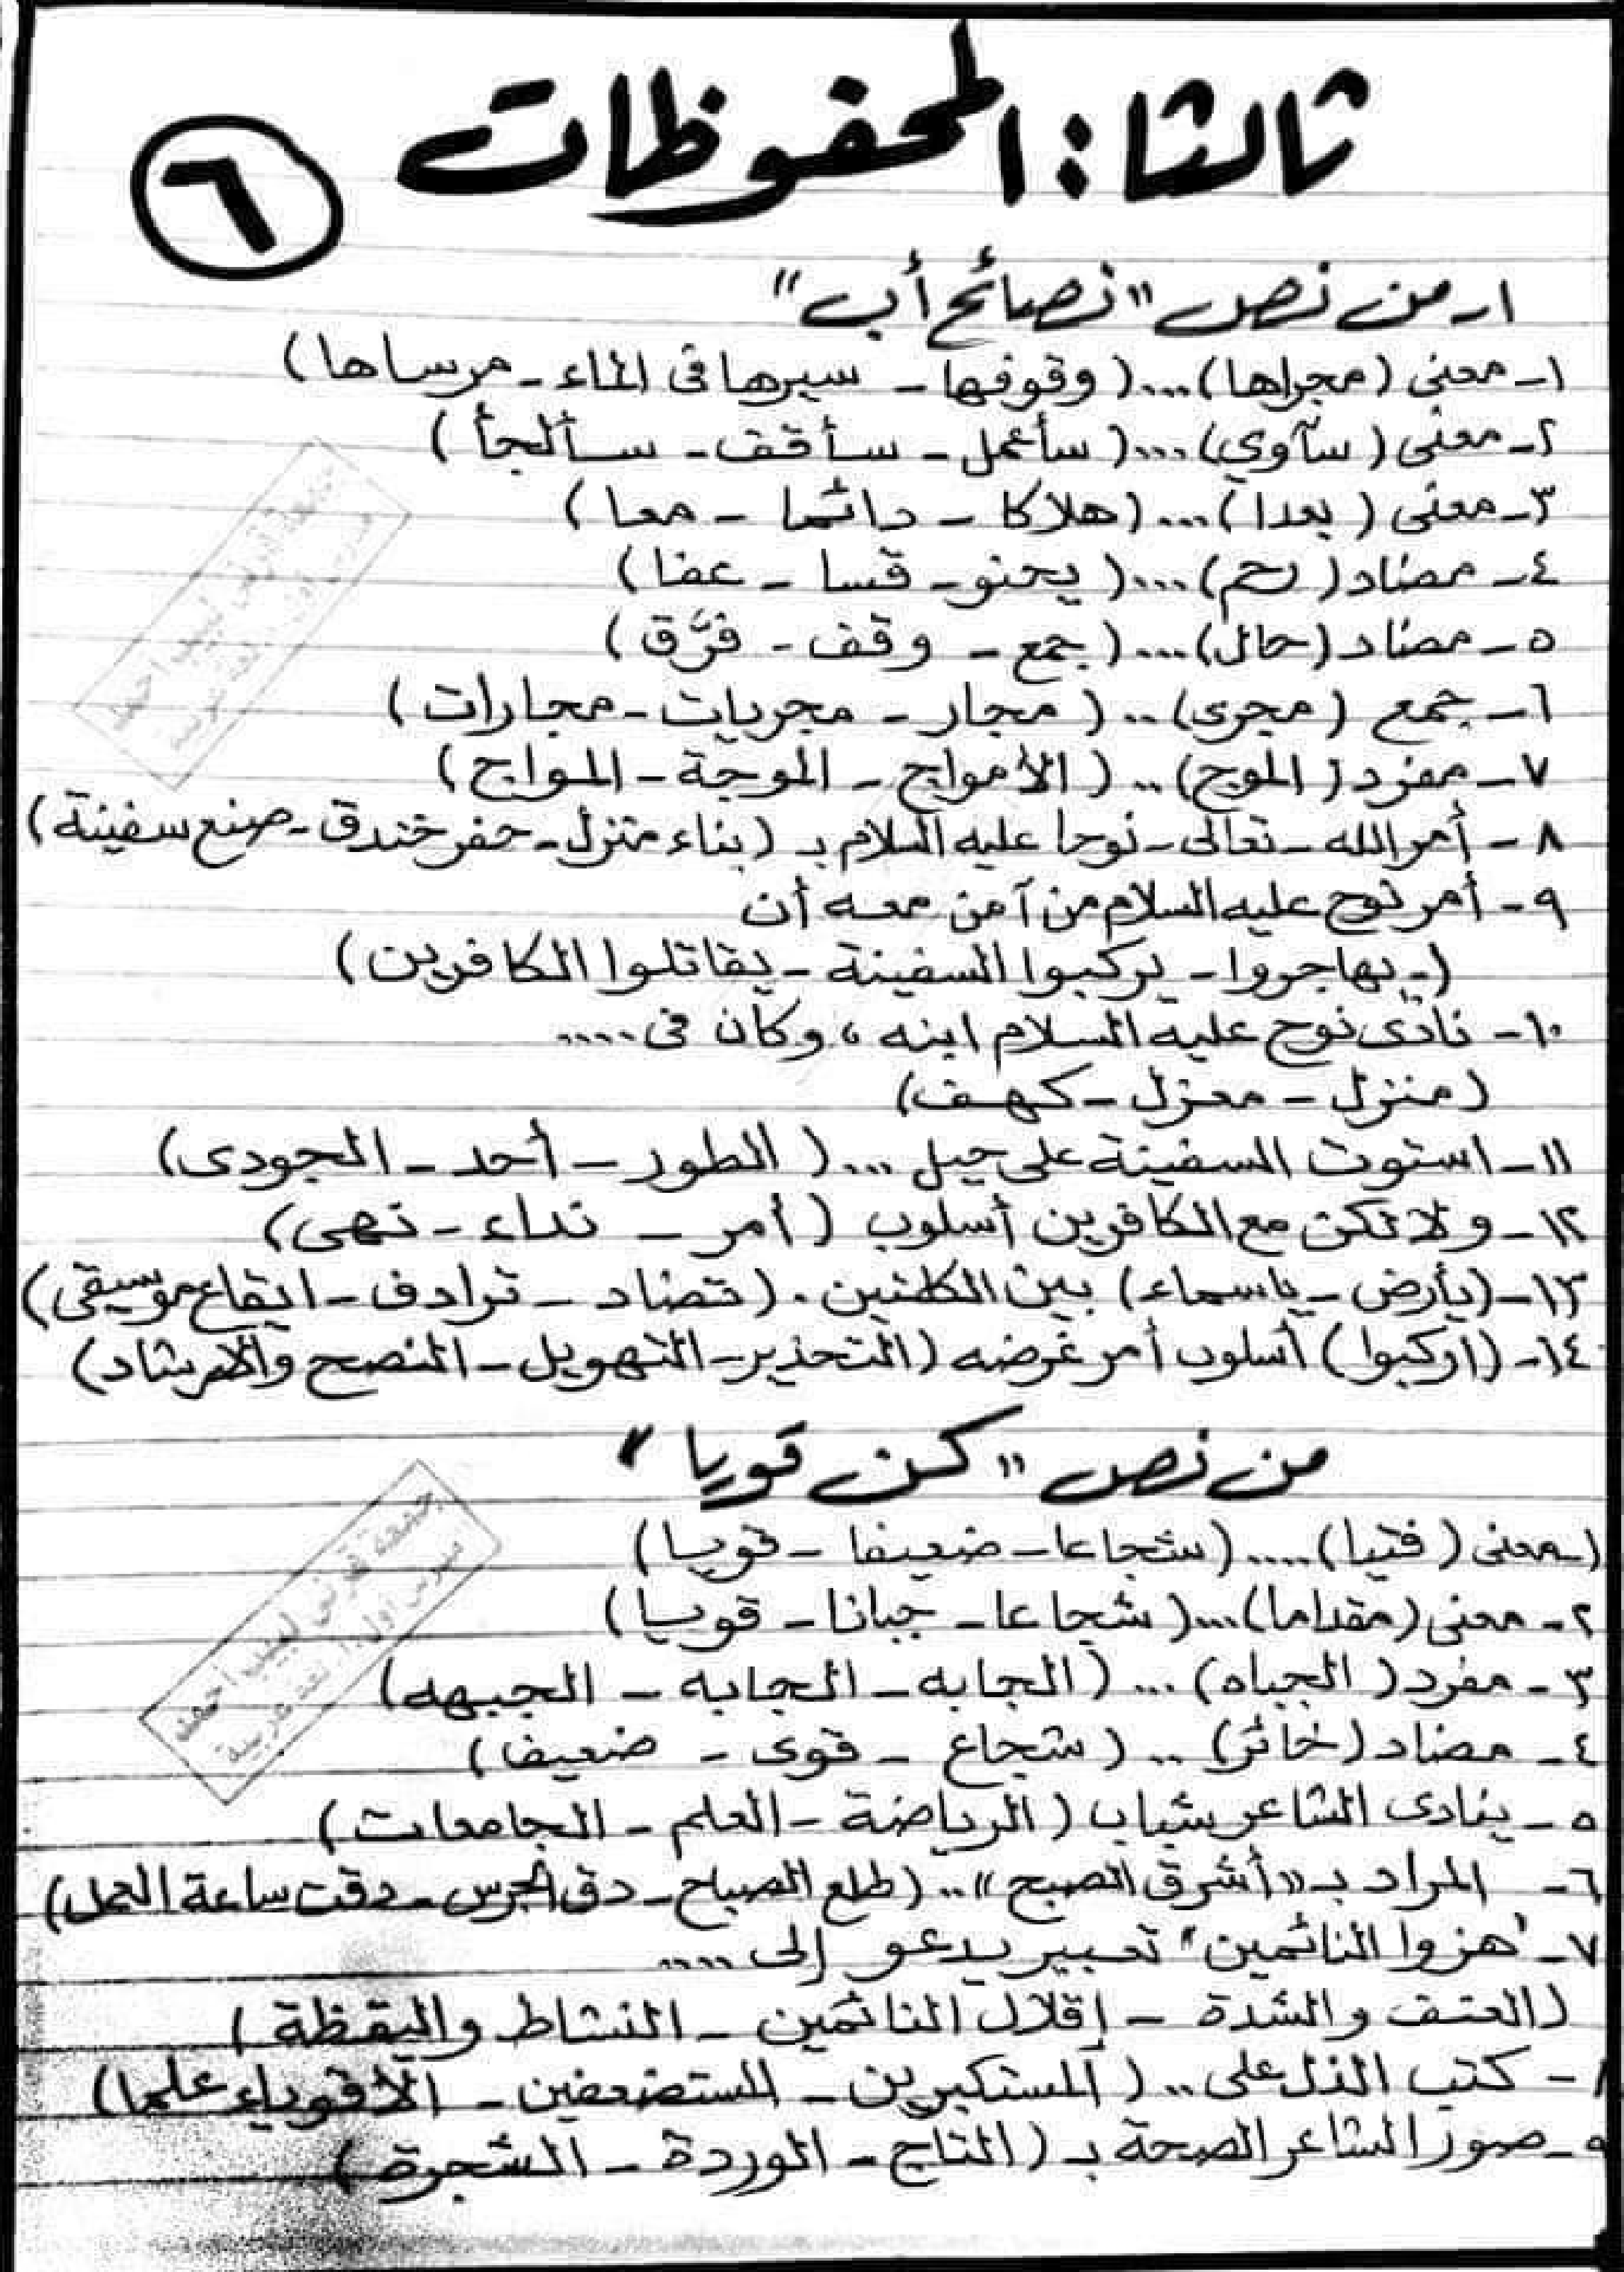 ثالثا: المحفوظات
٦
١ـ من نص "نصائح أب"
١ـ معنى (مجراها)....(وقوفها ـ سيرها فى الماء ـ مرساها)
٢ـ معنى (سآوي)....(سأعمل ـ سأقف ـ سألجأ)
٣ـ معنى (بعدا)...(هلاكا ـ دائما ـ معا)
٤ـ مضاد (رحم)....(يحنو ـ قسا ـ عفا)
٥ـ مضاد (حال)....(جمع ـ وقف ـ فرَّق)
٦ـ جمع (مجرى)..(مجار ـ مجريات ـ مجارات)
٧ـ مفرد (الموج)..(الأمواج ـ الموجة ـ المواج)
٨ـ أمر الله ـ تعالى ـ نوحا عليه السلام بـ (بناء منزل ـ حفر خندق ـ صنع سفينة)
٩ـ أمر نوح عليه السلام من آمن معه أن
(يهاجروا ـ يركبوا السفينة ـ يقاتلوا الكافرين)
١٠ـ نادى نوح عليه السلام ابنه، وكان فى.....
(منزل ـ معزل ـ كهف)
١١ـ استوت السفينة على جبل ...(الطور ـ أحد ـ الجودى)
١٢ـ ولا تكن مع الكافرين أسلوب (أمر ـ نداء ـ نهى)
١٣ـ (يأرض ـ ياسماء) بين الكلمتين. (تضاد ـ ترادف ـ ايقاع موسيقى)
١٤ـ (اركبوا) أسلوب أمر غرضه (التحذير ـ التهويل ـ النصح والارشاد)
من نص "كن قويا"
١ـ معنى (فتيا).....(شجاعا ـ ضعيفا ـ قويا)
٢ـ معنى (مقداما)....(شجاعا ـ جبانا ـ قويا)
٣ـ مفرد (الجباه)...(الجابه ـ الجابه ـ الجبهه)
٤ـ مضاد (خائر)..(شجاع ـ قوى ـ ضعيف)
٥ـ ينادى الشاعر شباب (الرياضة ـ العلم ـ الجامعات)
٦ـ المراد بـ "أشرق الصبح"..(طلع الصباح ـ دق الجرس ـ دقت ساعة العمل)
٧ـ "هزوا النائمين" تعبير يدعو إلى .....
(العنف والشدة ـ إقلال النائمين ـ النشاط واليقظة)
٨ـ كتب الذل على..(المستكبرين ـ المستضعفين ـ الأقوياء علما)
٩ـ صور الشاعر الصحة بـ (التاج ـ الوردة ـ الشجرة)